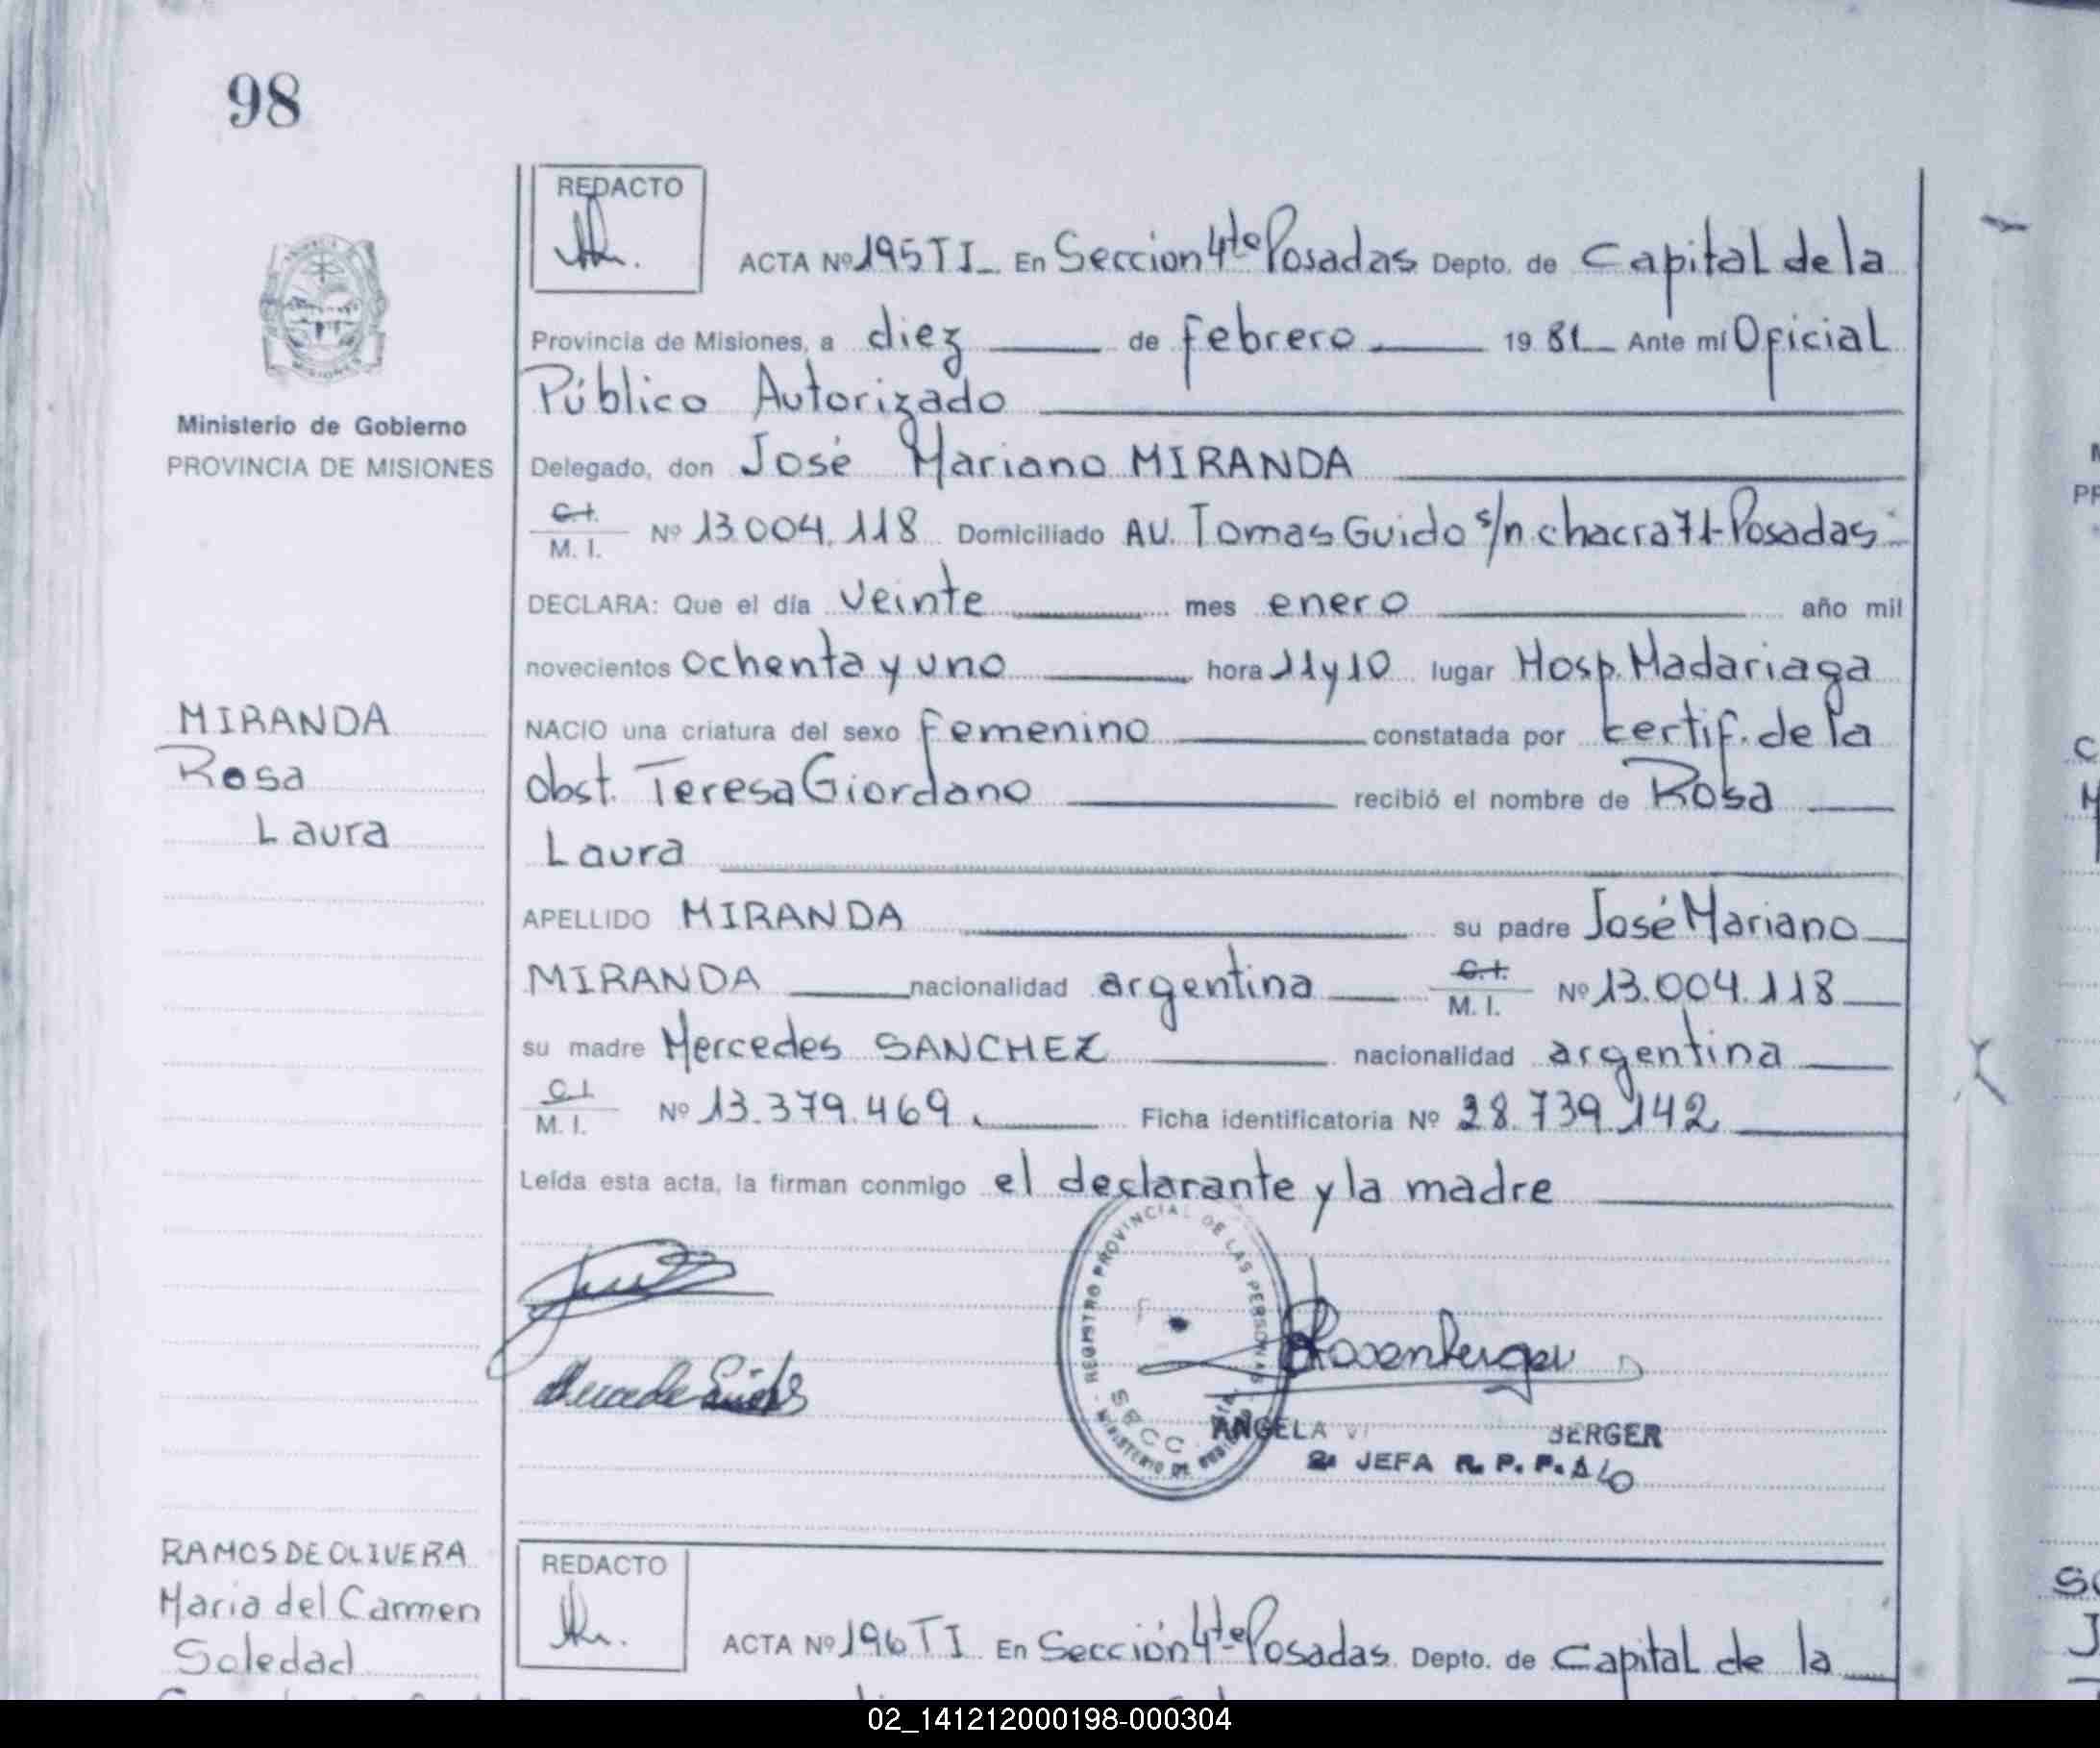 98
REDACTO
ACTA Nº 195 T I En Seccion 4ta Posadas Depto. de Capital de la
Provincia de Misiones, a diez de febrero 19 81 Ante mí Oficial
Público Autorizado
Ministerio de Gobierno
PROVINCIA DE MISIONES
Delegado, don José Mariano MIRANDA
C.I.
M. I. Nº 13.004.118 Domiciliado AV. Tomas Guido s/n chacra 71-Posadas-
DECLARA: Que el día veinte mes enero año mil
novecientos ochenta y uno hora 11 y 10 lugar Hosp. Madariaga
MIRANDA
Rosa
Laura
NACIO una criatura del sexo femenino constatada por certif. de la
obst. Teresa Giordano recibió el nombre de Rosa
Laura
APELLIDO MIRANDA su padre José Mariano
MIRANDA nacionalidad argentina C.I. M. I. Nº 13.004.118
su madre Mercedes SANCHEZ nacionalidad argentina
C.I.
M. I. Nº 13.379.469 Ficha identificatoria Nº 28.739.142
Leída esta acta, la firman conmigo el declarante y la madre
REGISTRO PROVINCIAL DE LAS PERSONAS
MINISTERIO DE
Rosenberger
ANGELA BERGER
JEFA R. P. P.
RAMOS DE OLIVERA
Maria del Carmen
Soledad
REDACTO
ACTA Nº 196 T I En Sección 4ta Posadas Depto. de Capital de la
02_141212000198-000304